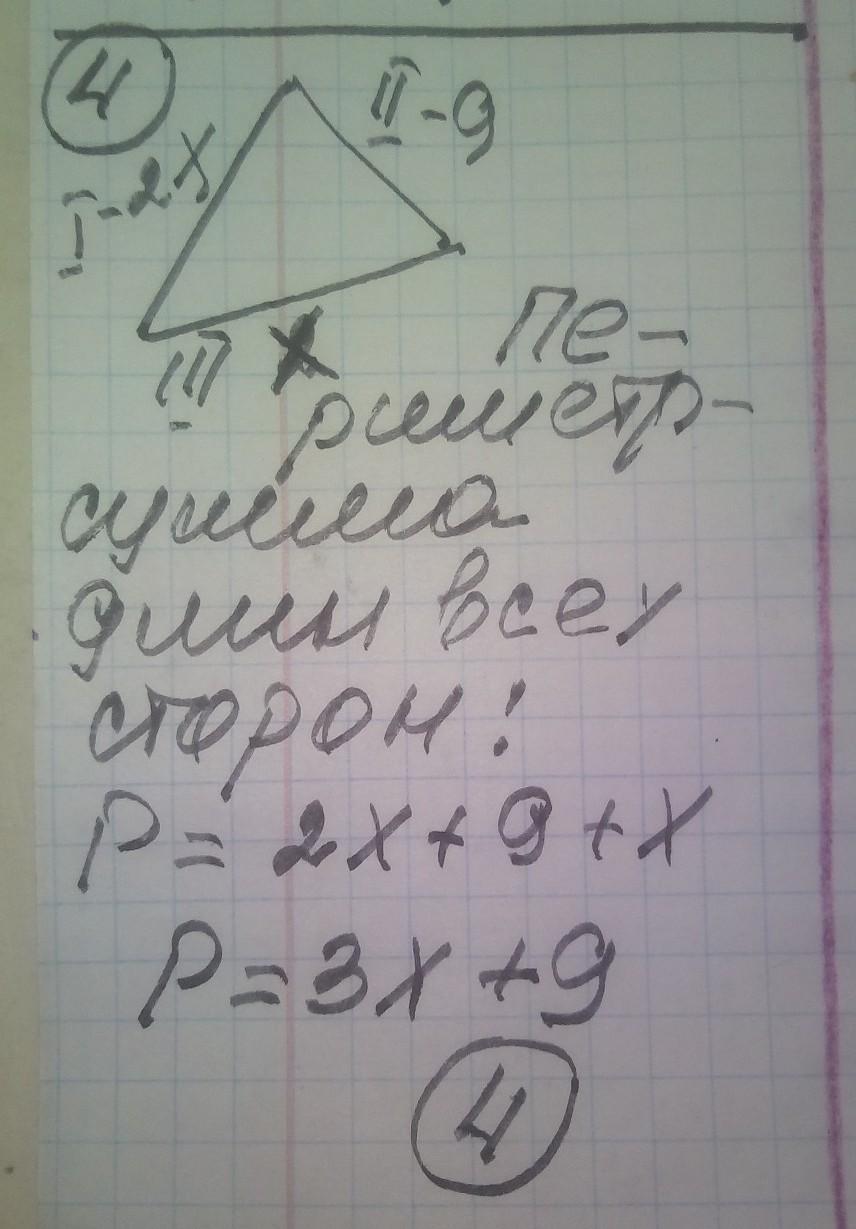 4
II-9
I-2х
III х
пе-
риметр-
сумма
длин всех
сторон!
P= 2х+9+х
P=3х+9
4